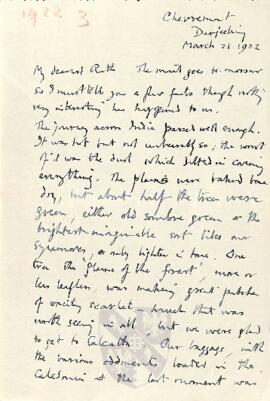 1922 3
Chevremont
Darjeeling
March 21. 1922
My dearest Ruth The mail goes to-morrow
so I must tell you a few facts though nothing
very interesting has happened to us.
The journey across India passed well enough.
It was hot but not unbearably so; the worst
of it was the dust which sifted in covering
everything. The plains were baked bone
dry, but about half the trees were
green, either old sombre green or the
brightest imaginable sort like our
sycamores, or only lighter in tone. One
tree the flame of the forest, more or
less leafless, was making great patches
of exciting scarlet, much that was
worth seeing in all; but we were glad
to get to Calcutta. Our baggage, with
the various oddments loaded in the
Caledonia at the last moment was